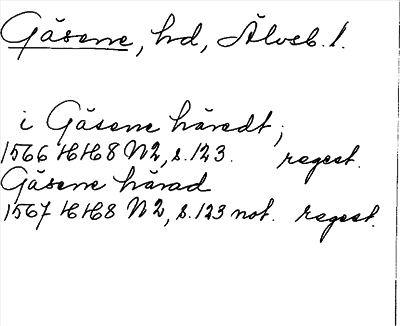 Gäsene, hd, Älvsb. l.
i Gäsene häredt;
1566 HH8 N2, s. 123. regest.
Gäsene härad
1567 HH8 N2, s. 123 not. regest.